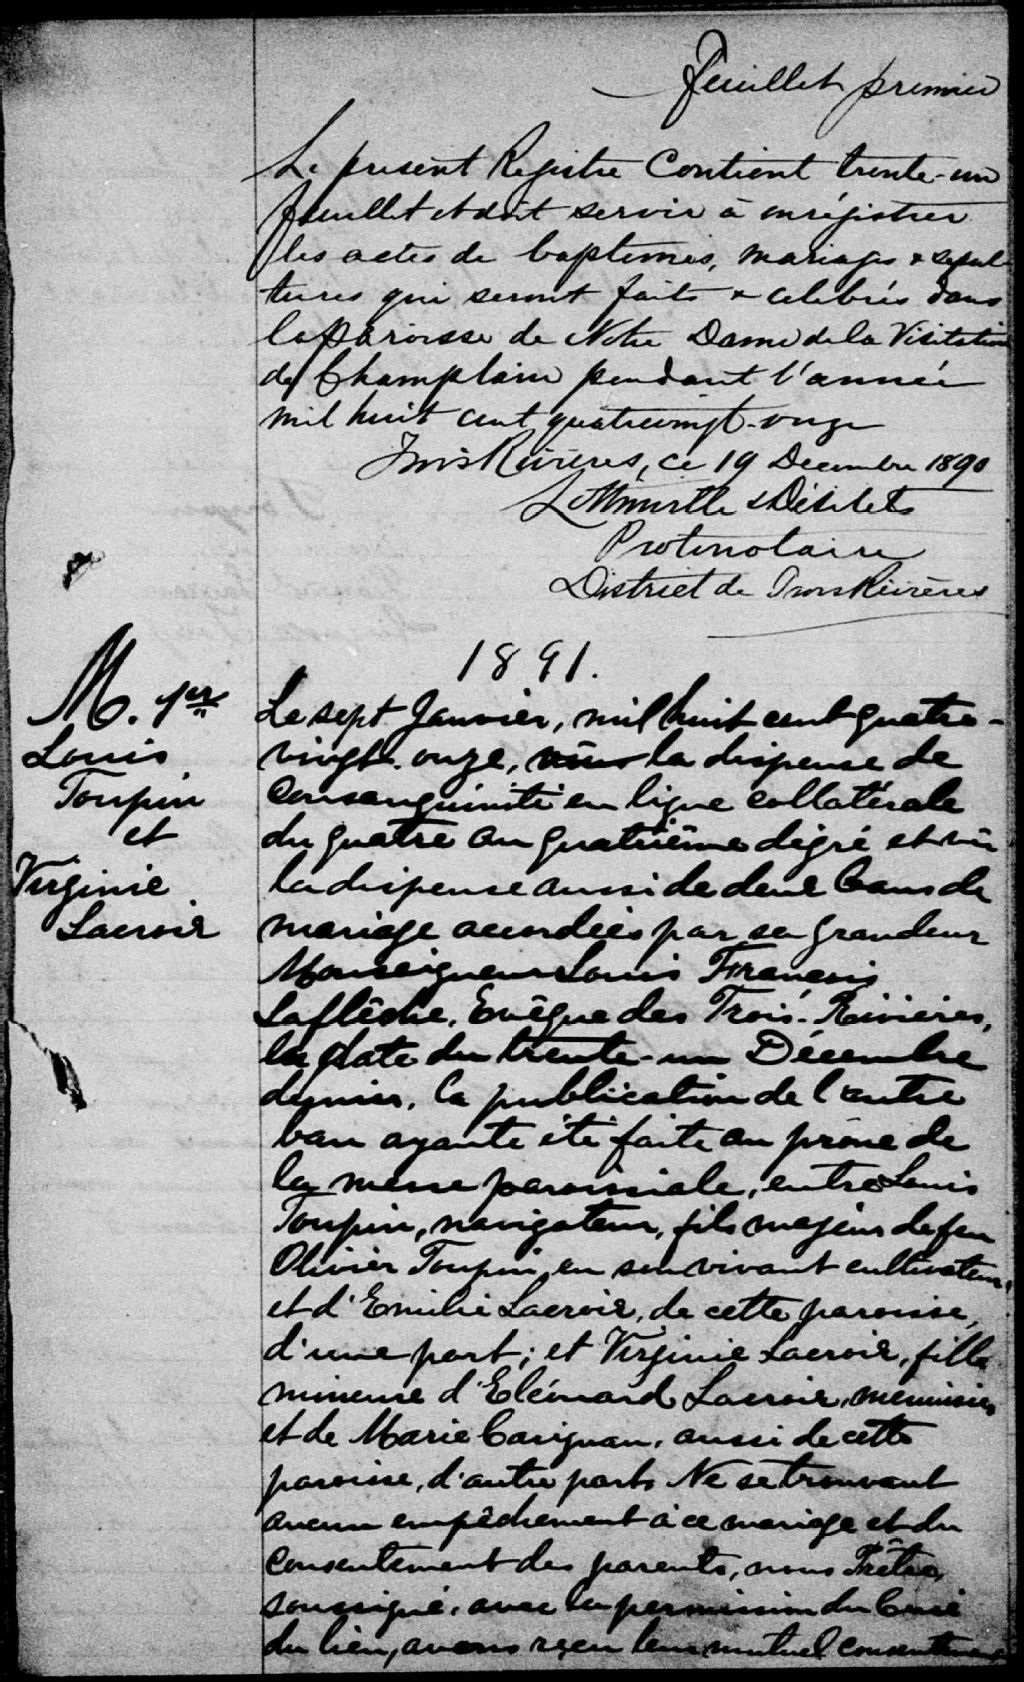 Feuillet premier
Le présent Registre Contient trente-un
feuillet et doit servir à enrégistrer
les actes de baptemes, mariages & sepul
tures qui seront faits & celebrés dans
la Paroisse de Notre Dame de la Visitation
de Champlain pendant l'année
mil huit cent quatrevingt-onze
Trois Rivières, ce 19 Decembre 1890
& Désilets
Protonotaire
District de Trois Rivières
1891.
M. 1er
Louis
Toupin
et
Virginie
Lacroix
Le sept Janvier, mil huit cent quatre-
vingt-onze, la dispense de
consanguinité en ligne collatérale
du quatre au quatrième dégré et vu
la dispense aussi de deux bans de
mariage accordées par sa grandeur
Monseigneur Louis François
Laflêche, Evêque des Trois-Rivières,
en date du trente-un Décembre
dernier, la publication de l'autre
ban ayante été faite au prône de
la messe paroissiale, entre Louis
Toupin, navigateur, fils majeur de feu
Olivier Toupin, en son vivant cultivateur,
et d'Emilie Lacroix, de cette paroisse,
d'une part; et Virginie Lacroix, fille
mineure d'Eléonard Lacroix, menuisier
et de Marie Carignan, aussi de cette
paroisse, d'autre part. Ne se trouvant
aucun empêchement à ce mariage et du
consentement des parents, nous Prêtre,
soussigné, avec la permission du Curé
du lieu, avons reçu leur mutuel consentement